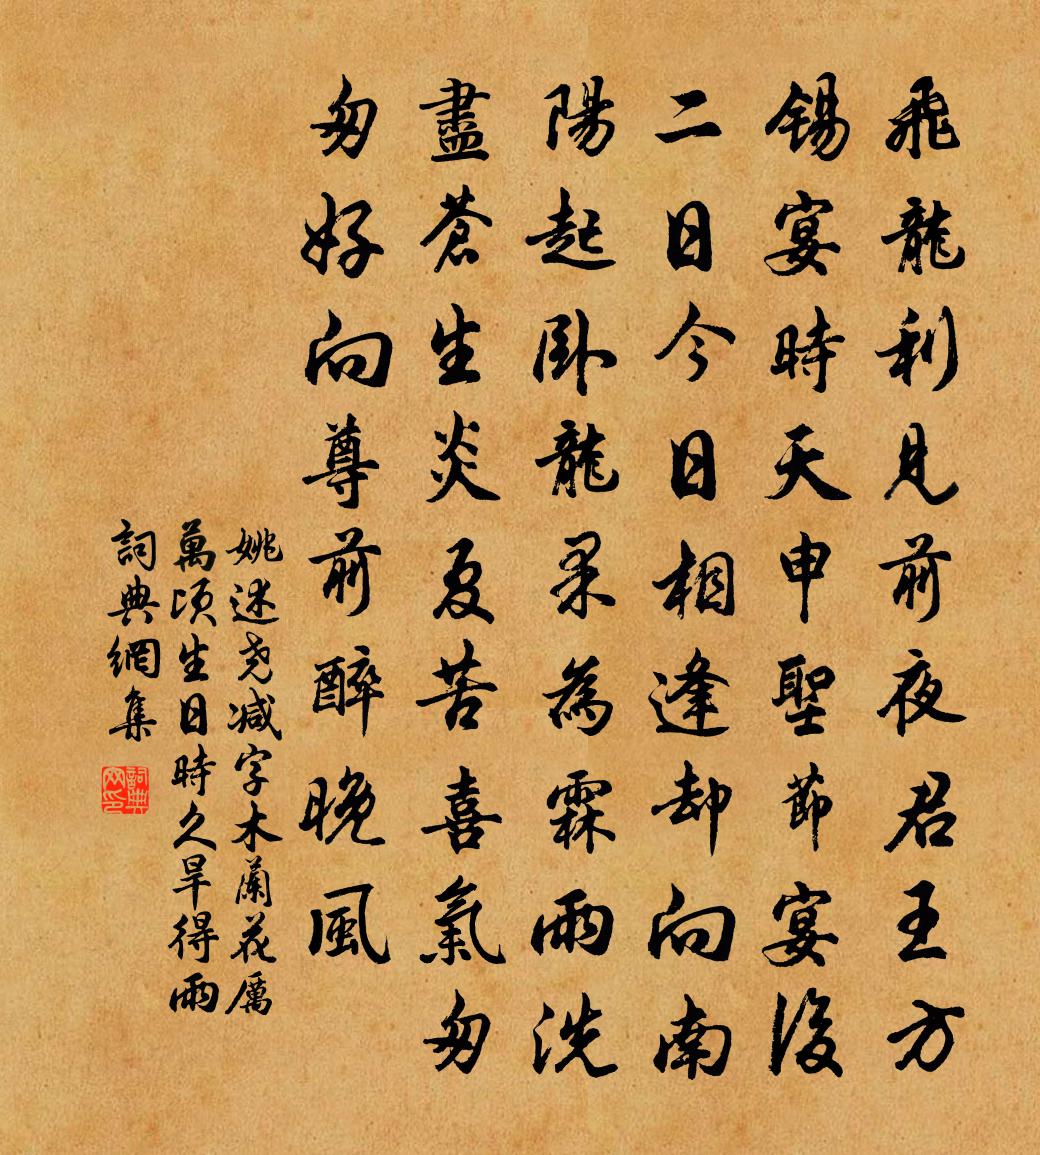 飛龍利見前夜君王方
錫宴時天申聖節宴後
二日今日相逢却向南
陽起卧龍柔為霖雨洗
盡蒼生炎夏苦喜氣匆
匆好向尊前醉晚風
姚述堯減字木蘭花厲
萬頃生日時久旱得雨
詞典網集
詞典网印